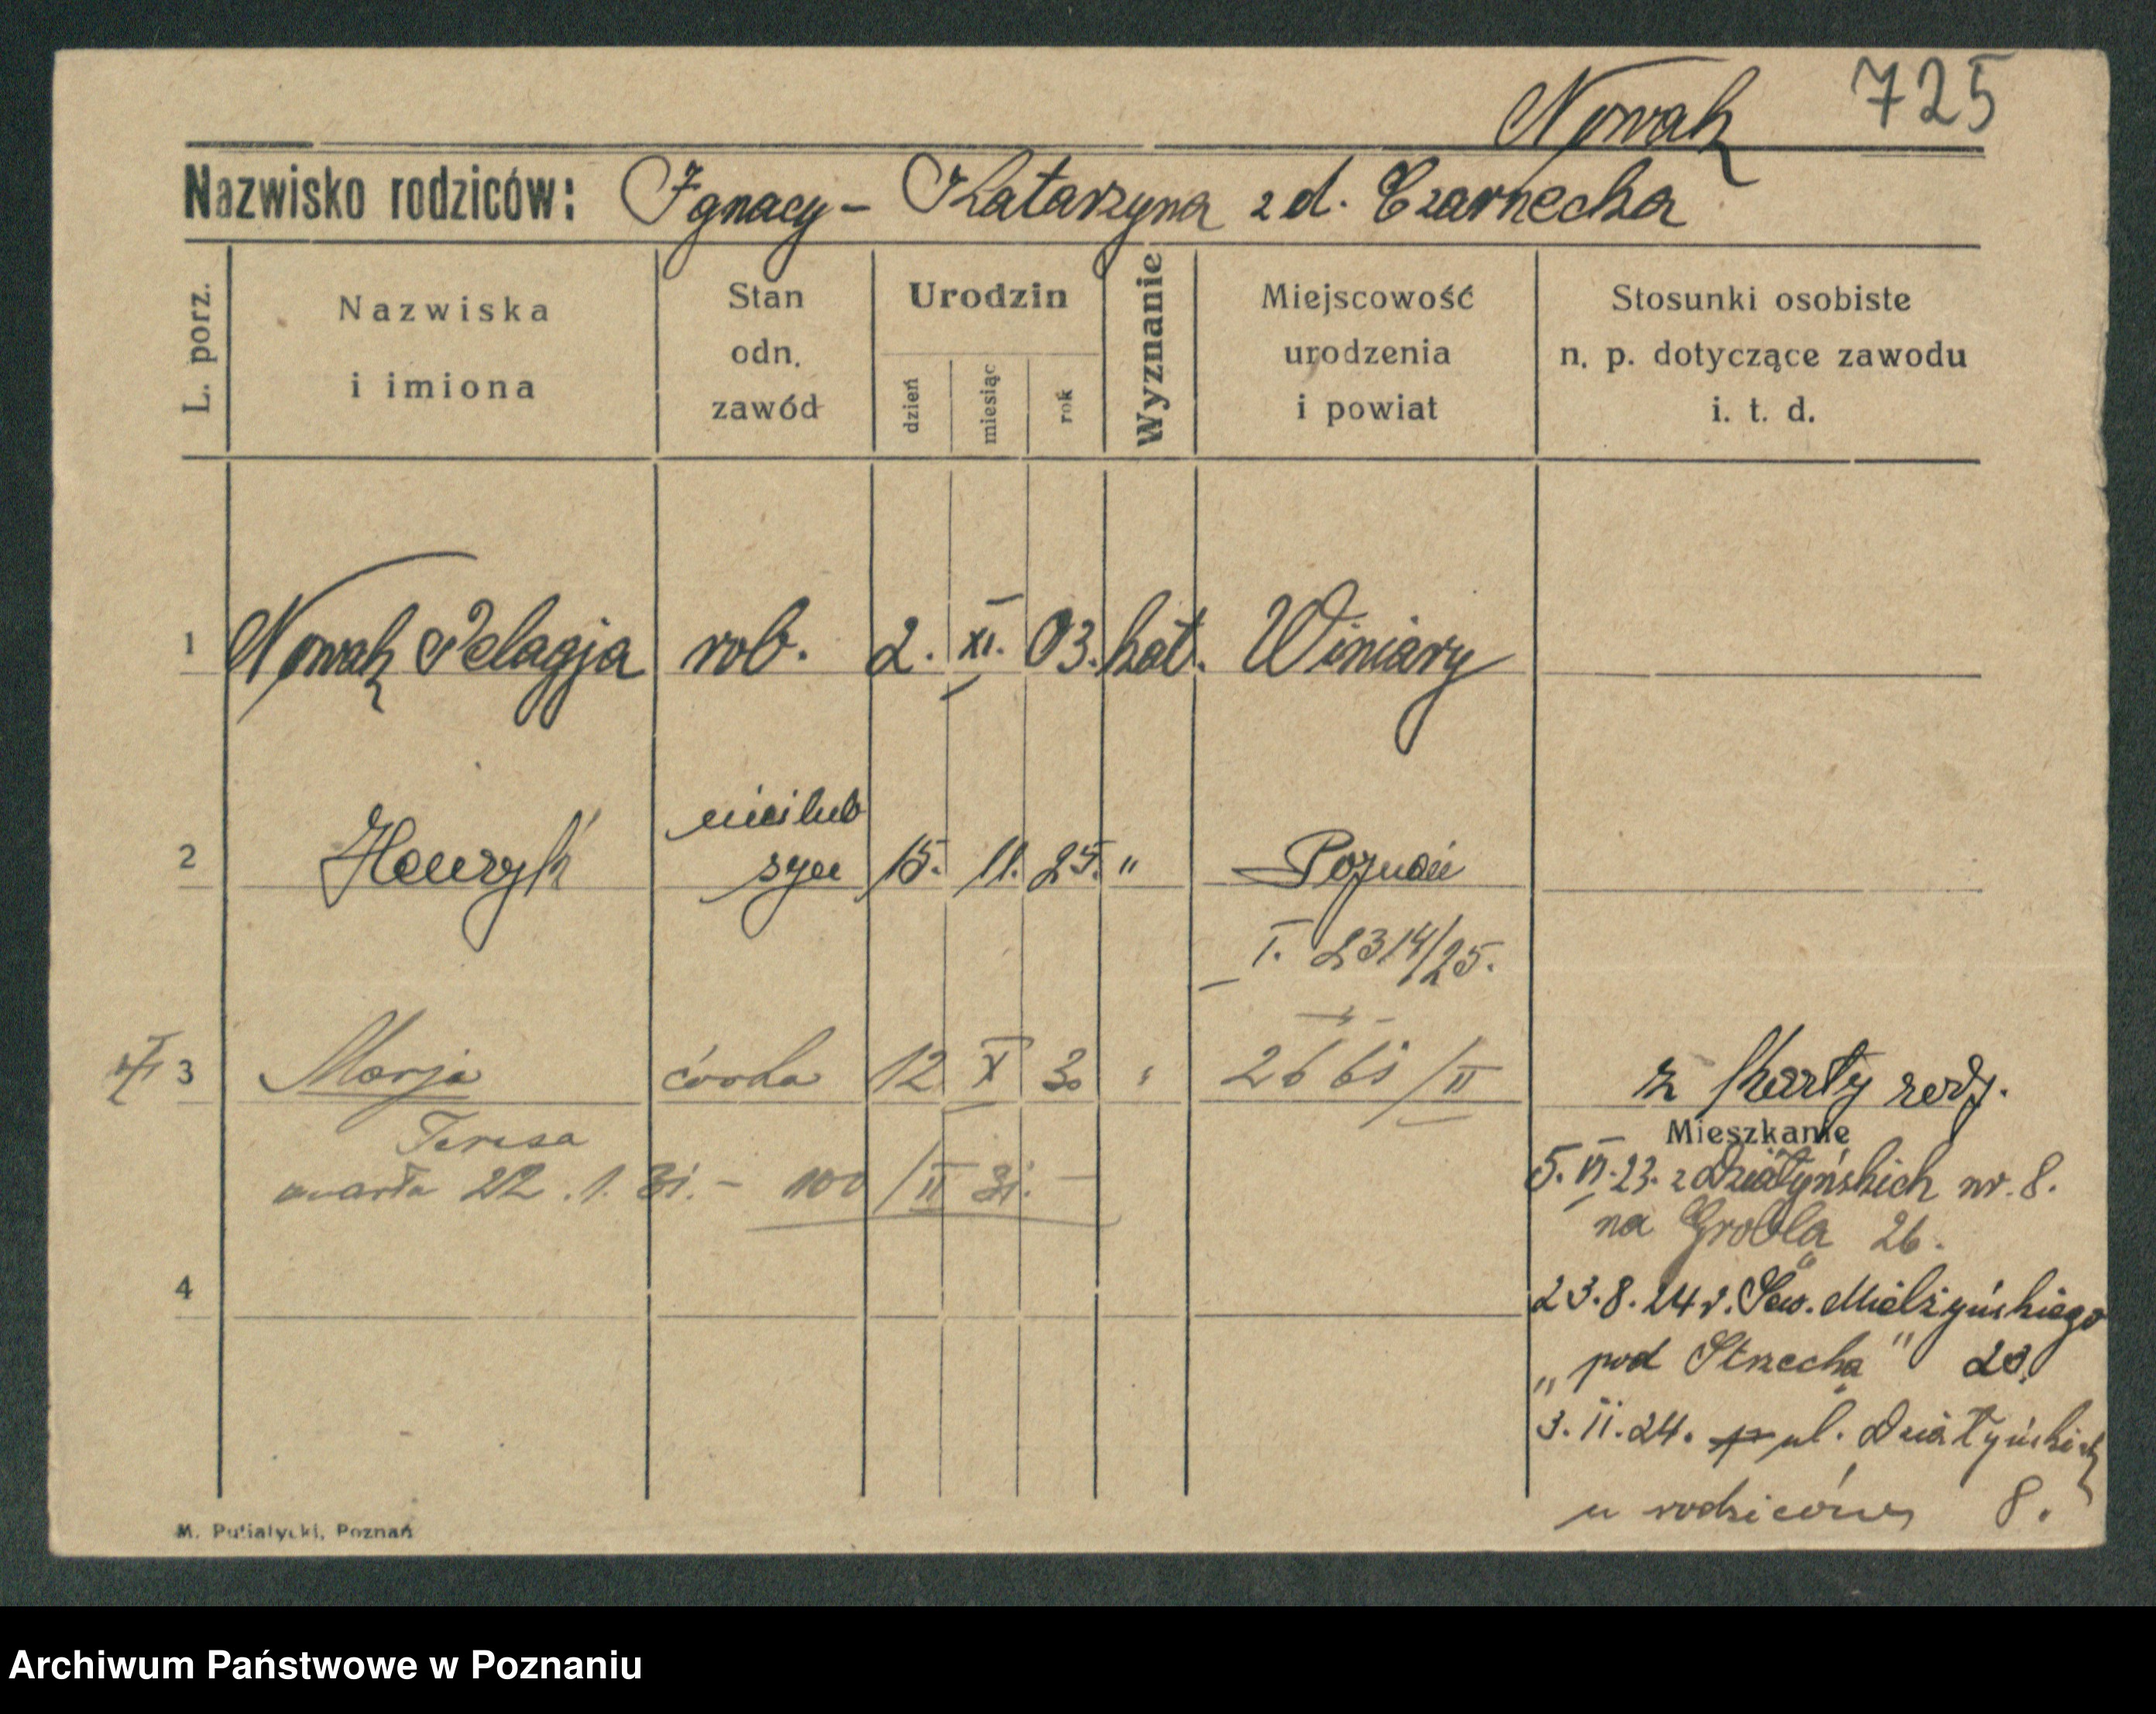 Nowak 725
Nazwisko rodziców: Ignacy - Katarzyna z d. Czarnecka
L. porz.
Nazwiska
i imiona
Stan
odn.
zawód
Urodzin
dzień
miesiąc
rok
Wyznanie
Miejscowość
urodzenia
i powiat
Stosunki osobiste
n. p. dotyczące zawodu
i. t. d.
1 Nowak Pelagja rob. 2. XI. 03. kat. Winiary
nieślub
2 Henryk syn 15. 11. 25. " Poznań
I. 2314/25.
3 Marja córka 12 X 30 " /II
z Karty rodz.
Teresa
Mieszkanie
zmarła 22. 1. 31. - 100/II 31. -
5. VI. 23. z Działyńskich nr. 8.
na Groblą 26.
4
23. 8. 24 r. Sew. Mielżyńskiego
"pod Strzechą" 23.
3. 11. 24. ul. Działyńskich
u rodziców 8.
M. Putiatycki, Poznań
Archiwum Państwowe w Poznaniu